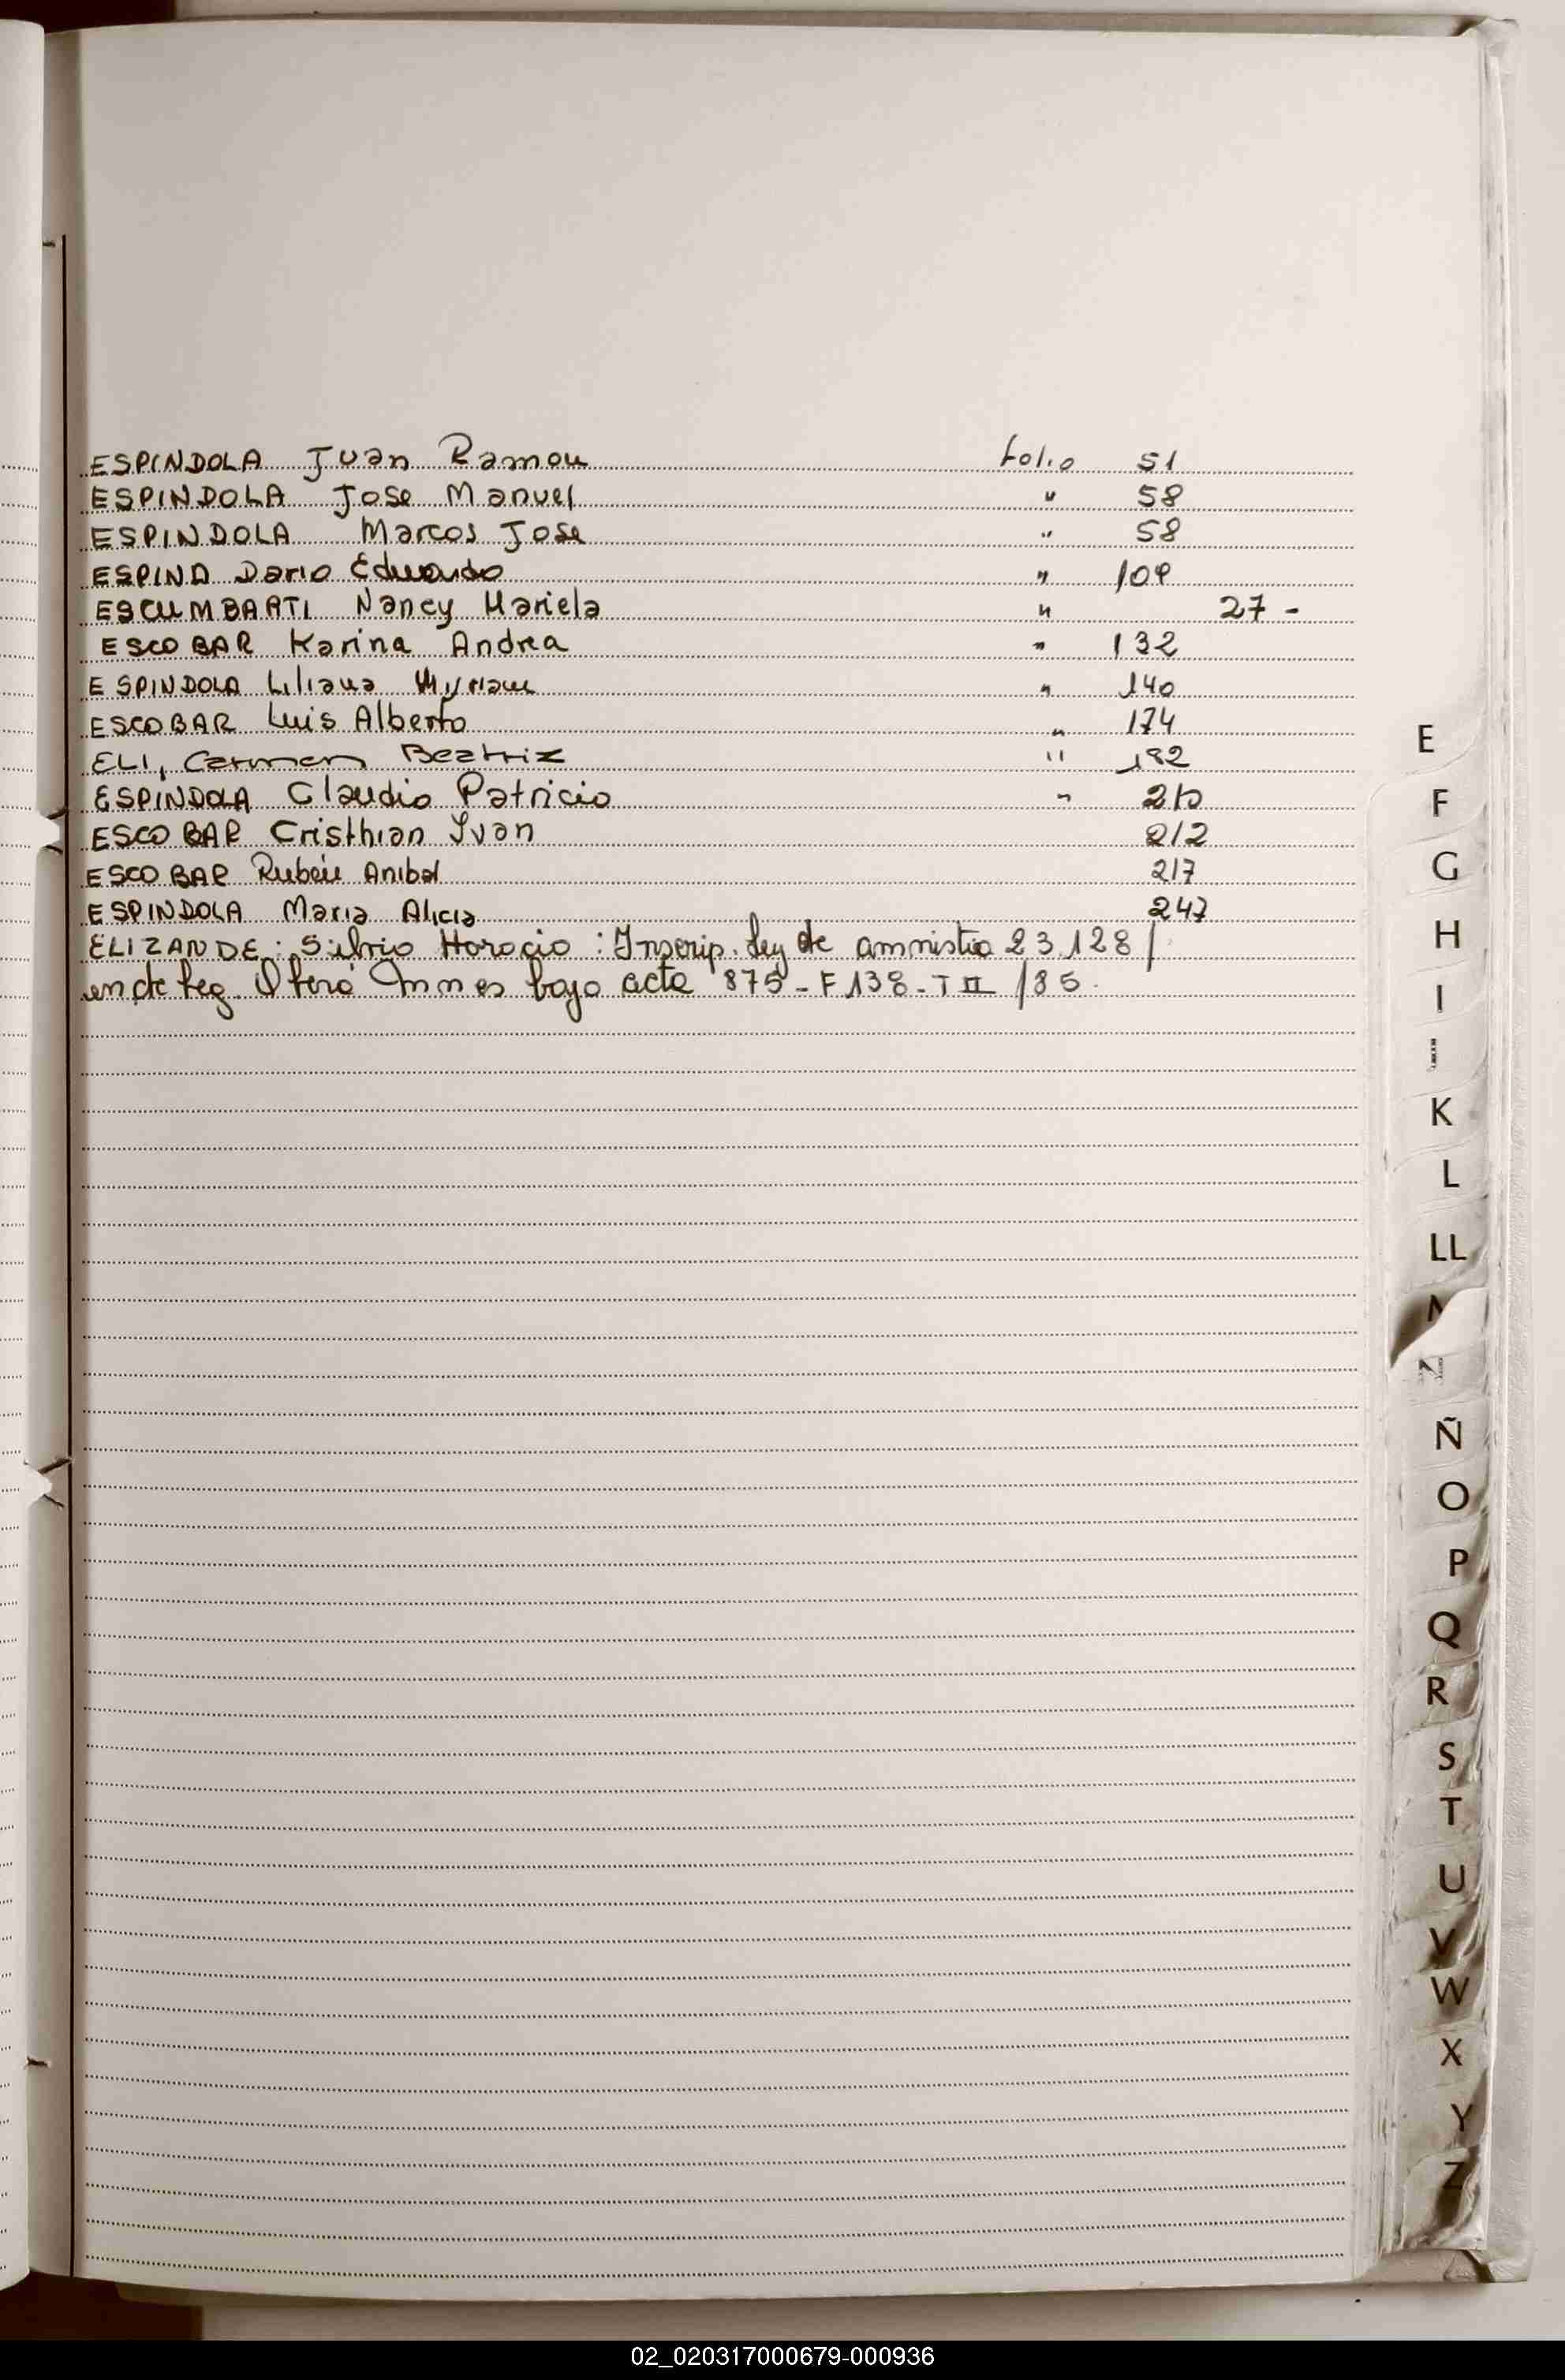 ESPINDOLA Juan Ramon folio 51
ESPINDOLA Jose Manuel " 58
ESPINDOLA Marcos Jose " 58
ESPINA Dario Eduardo " 109
ESCUMBARTI Nancy Mariela " 27 -
ESCOBAR Karina Andrea " 132
ESPINDOLA Liliana Myriam " 140
ESCOBAR Luis Alberto " 174
ELI, Carmen Beatriz " 182
ESPINDOLA Claudio Patricio " 210
ESCOBAR Cristhian Ivan 212
ESCOBAR Rubén Anibal 217
ESPINDOLA Maria Alicia 247
ELIZANDE: Silvio Horacio : Inscrip. Ley de amnistia 23.128/
bajo acta 875 - F 138 - T II /85.
E
F
G
H
I
K
L
LL
Ñ
O
P
Q
R
S
T
U
V
W
X
Y
Z
02_020317000679-000936